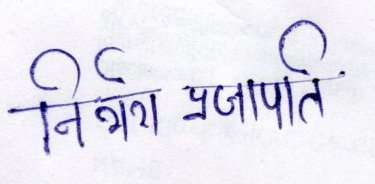 निर्भय प्रजापति